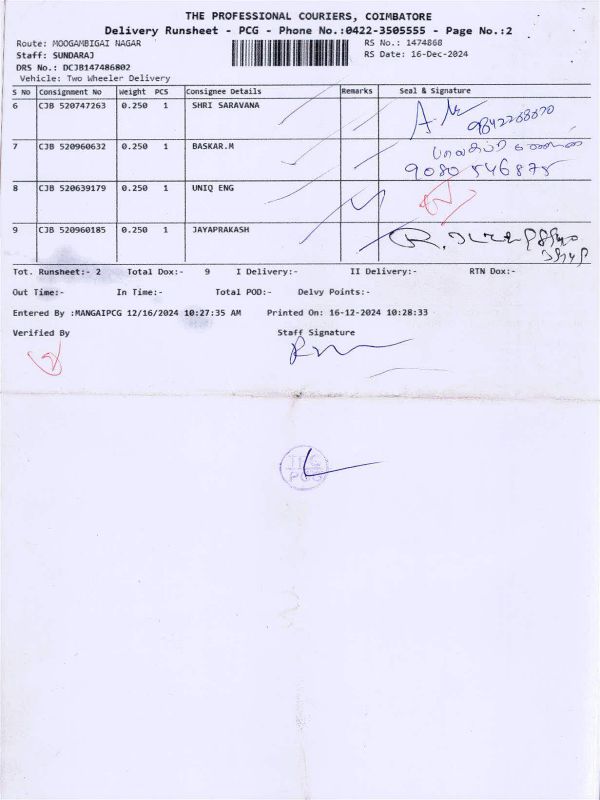 THE PROFESSIONAL COURIERS, COIMBATORE
Delivery Runsheet - PCG - Phone No.:0422-3505555 - Page No.:2
Route: MOOGAMBIGAI NAGAR RS No.: 1474868
Staff: SUNDARAJ RS Date: 16-Dec-2024
DRS No.: DCJB147486802
Vehicle: Two Wheeler Delivery
S No Consignment No Weight PCS Consignee Details Remarks Seal & Signature
6 CJB 520747263 0.250 1 SHRI SARAVANA
7 CJB 520960632 0.250 1 BASKAR.M
9080 546875
8 CJB 520639179 0.250 1 UNIQ ENG
9 CJB 520960185 0.250 1 JAYAPRAKASH
Tot. Runsheet:- 2 Total Dox:- 9 I Delivery:- II Delivery:- RTN Dox:-
Out Time:- In Time:- Total POD:- Delvy Points:-
Entered By :MANGAIPCG 12/16/2024 10:27:35 AM Printed On: 16-12-2024 10:28:33
Verified By Staff Signature